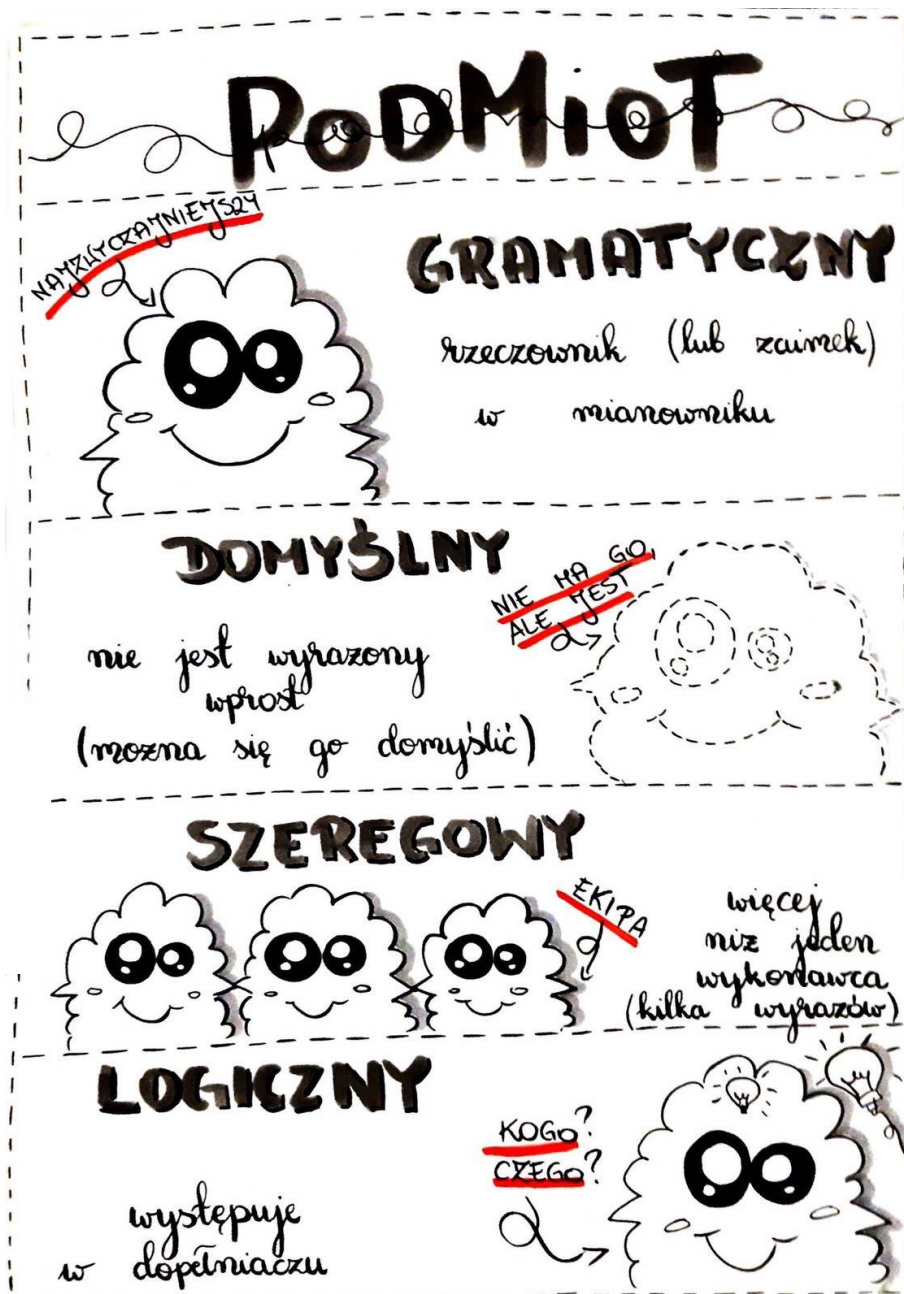 PODMIOT
NAJZWYCZAJNIEJSZY
GRAMATYCZNY
rzeczownik (lub zaimek)
w mianowniku
DOMYŚLNY
NIE MA GO,
ALE JEST
nie jest wyrazony
wprost
(mozna się go domyślić)
SZEREGOWY
EKIPA
więcej
niz jeden
wykonawca
(kilka wyrazów)
LOGICZNY
KOGO?
CZEGO?
występuje
w dopełniaczu